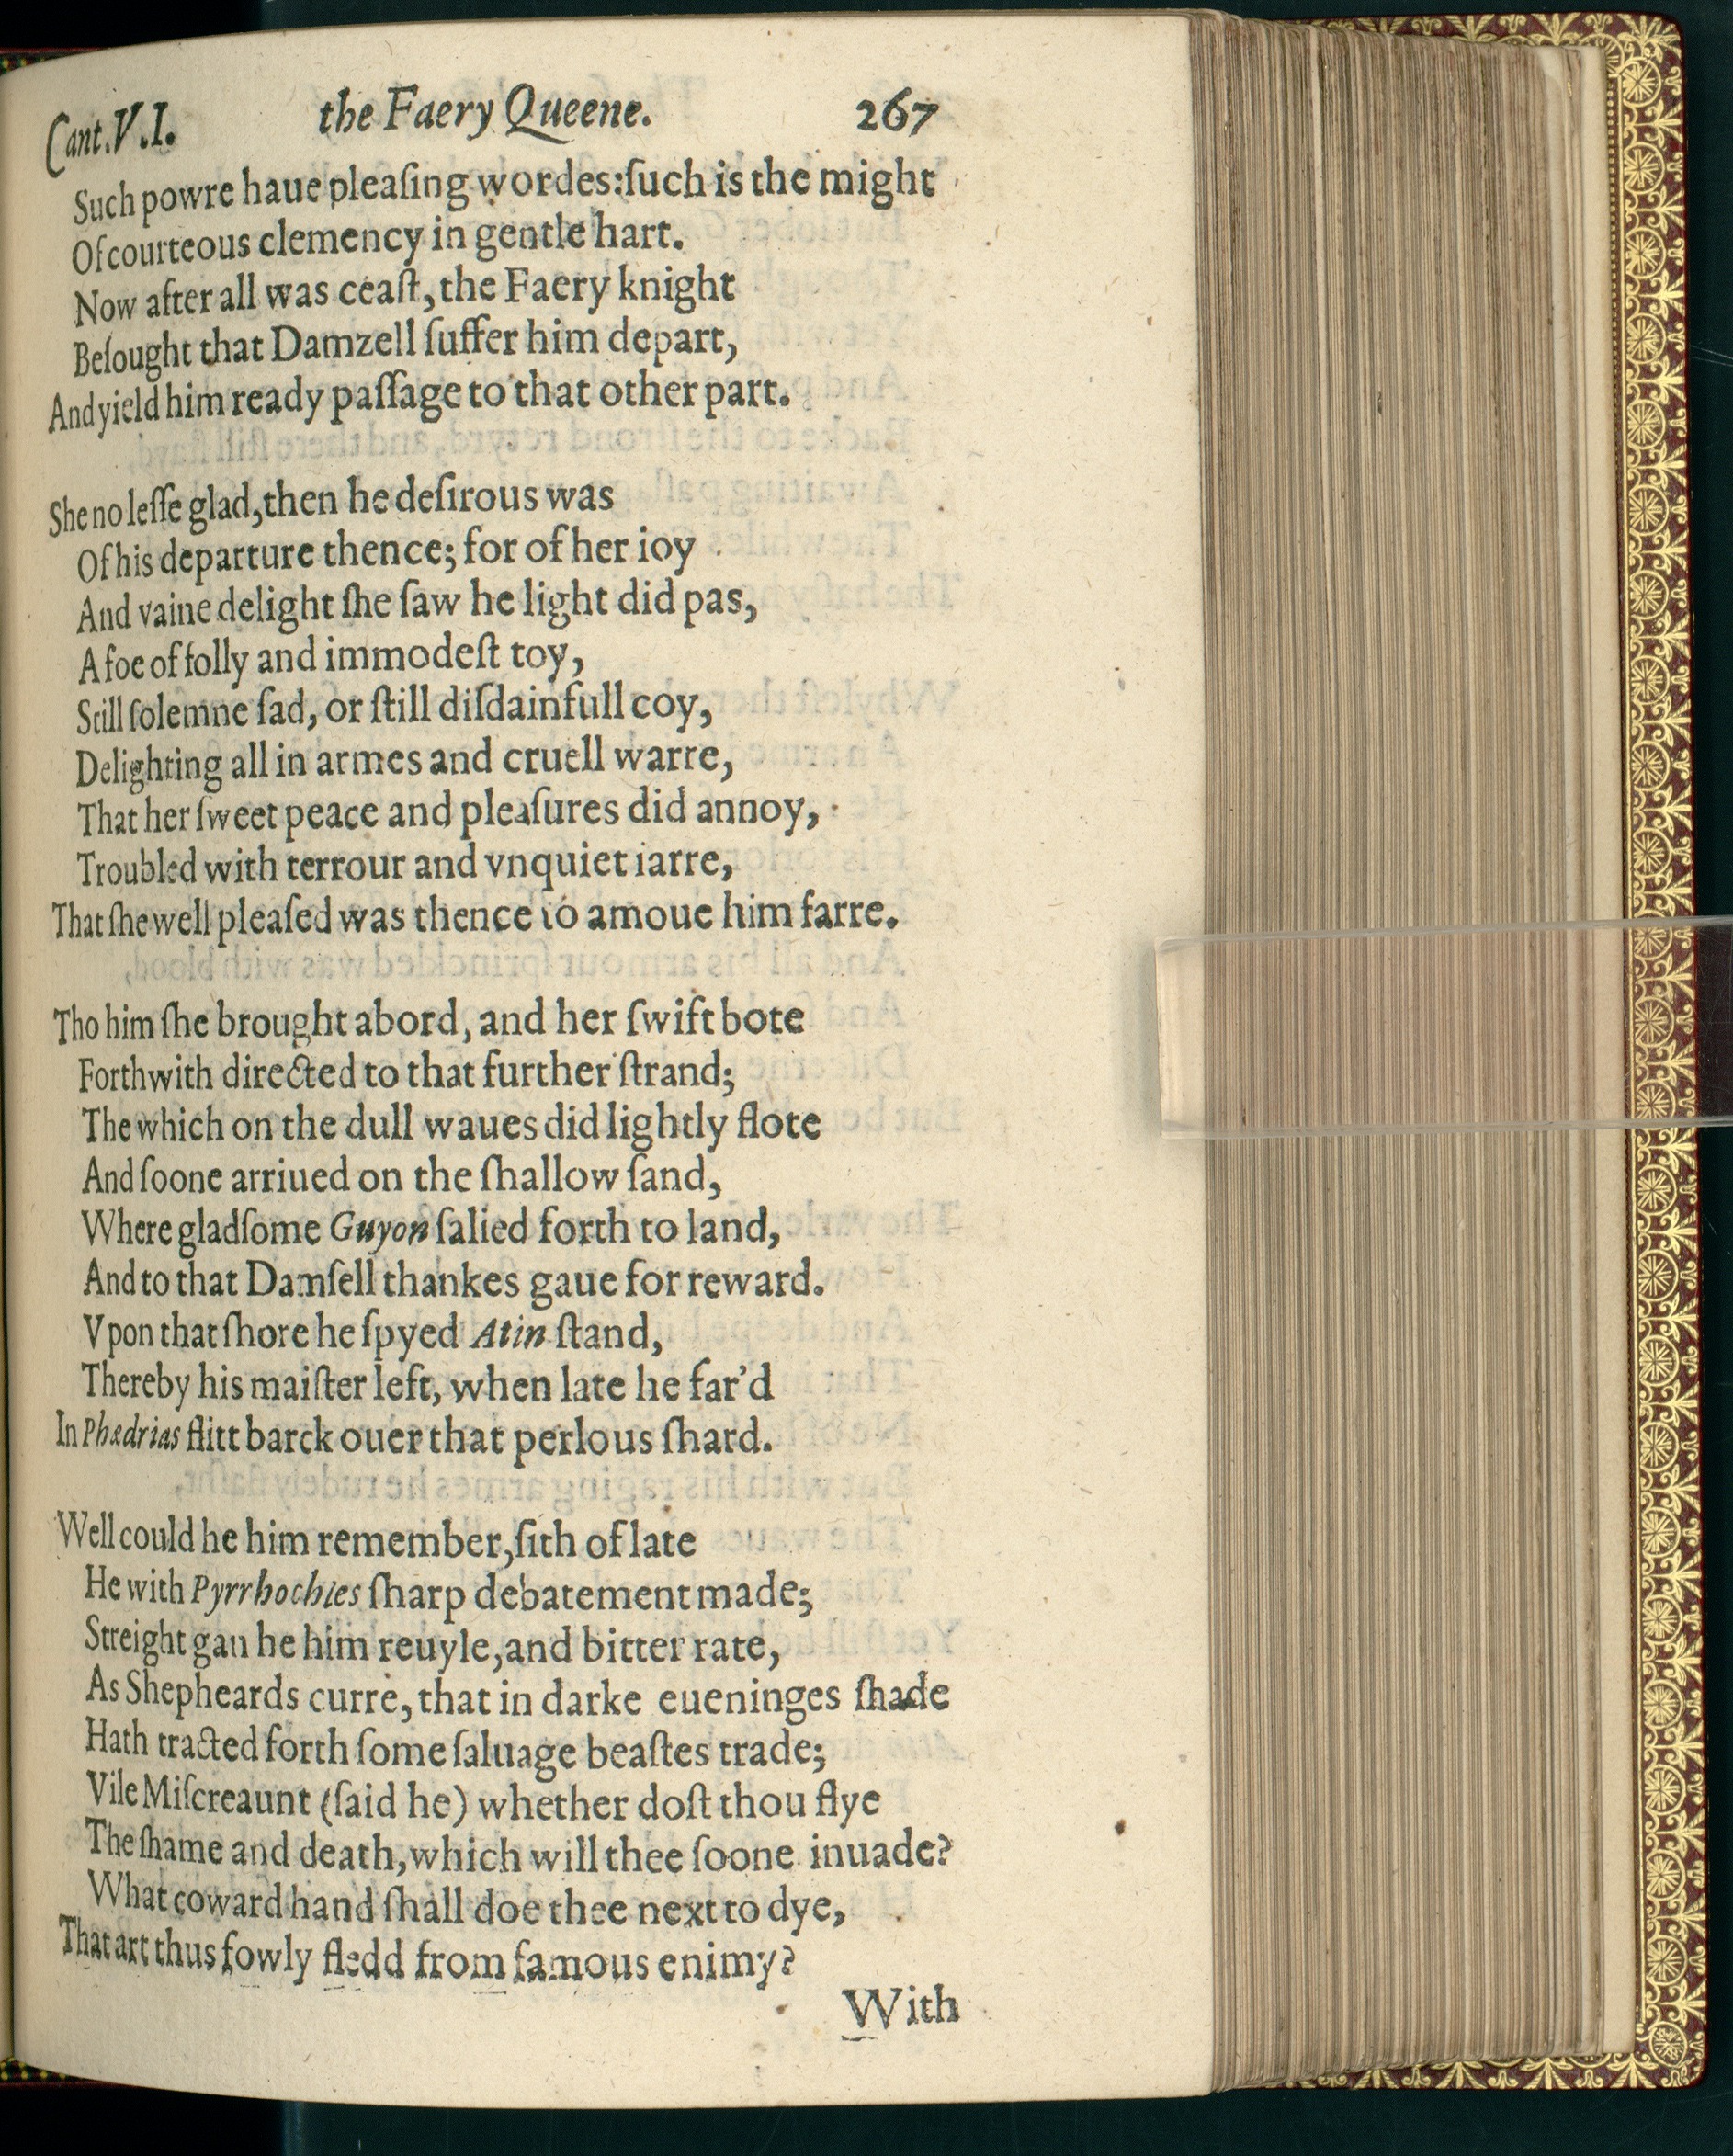 Cant. V.I. the Faery Queene. 267
Such powre haue pleaſing wordes: ſuch is the might
Of courteous clemency in gentle hart.
Now after all was ceaſt, the Faery knight
Beſought that Damzell ſuffer him depart,
And yield him ready paſſage to that other part.
She no leſſe glad, then he deſirous was
Of his departure thence; for of her ioy
And vaine delight ſhe ſaw he light did pas,
A foe of folly and immodeſt toy,
Still ſolemne ſad, or ſtill diſdainfull coy,
Delighting all in armes and cruell warre,
That her ſweet peace and pleaſures did annoy,
Troubled with terrour and vnquiet iarre,
That ſhe well pleaſed was thence to amoue him farre.
Tho him ſhe brought abord, and her ſwift bote
Forthwith directed to that further ſtrand;
The which on the dull waues did lightly flote
And ſoone arriued on the ſhallow ſand,
Where gladſome Guyon ſalied forth to land,
And to that Damſell thankes gaue for reward.
Vpon that ſhore he ſpyed Atin ſtand,
Thereby his maiſter left, when late he far'd
In Phædrias flitt barck ouer that perlous ſhard.
Well could he him remember, ſith of late
He with Pyrrhochles ſharp debatement made;
Streight gan he him reuyle, and bitter rate,
As Shepheards curre, that in darke eueninges ſhade
Hath tracted forth ſome ſaluage beaſtes trade;
Vile Miſcreaunt (ſaid he) whether doſt thou flye
The ſhame and death, which will thee ſoone inuade?
What coward hand ſhall doe thee next to dye,
That art thus fowly fledd from famous enimy?
With